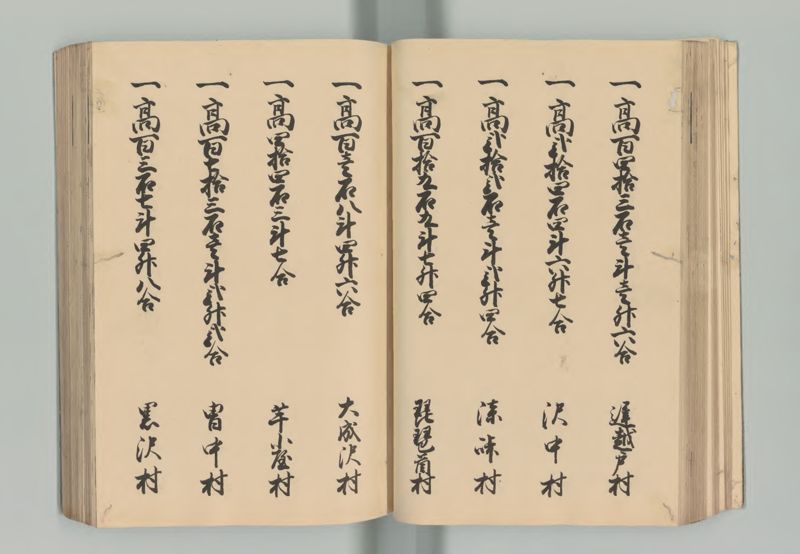 一高百四拾三石壱斗壱升六合 遅越戸村
一高弐拾四石四斗六升七合 沢中村
一高弐拾弐石壱斗弐升四合 漆峠村
一高百拾九石九斗七升四合 琵琶首村
一高百壱石八斗四升六合 大成沢村
一高四拾四石三斗七合 芋小屋村
一高百七拾三石壱斗弐升弐合 冑中村
一高百三石七斗四升八合 黒沢村